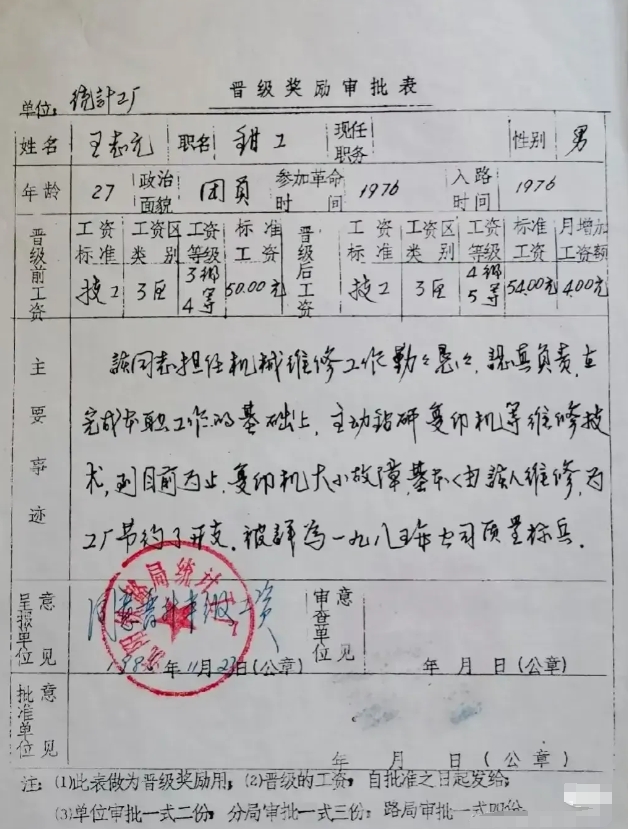 晋级奖励审批表
单位：统計工厂
姓名 王志元 职名 钳工 现任职务 性别 男
年龄 27 政治面貌 团员 参加革命时间 1976 入路时间 1976
晋级前工资 工资标准 工资区类别 工资等级 标准工资 晋级后工资 工资标准 工资区类别 工资等级 标准工资 月增加工资额
技工 3区 3级4等 50.00元 技工 3区 4级5等 54.00元 4.00元
主要事迹
該同志担任机械维修工作勤々恳々，認真负责，在
完成本职工作的基础上，主动钻研复印机等维修技
术，到目前为止，复印机大小故障，基本々由該人维修，为
工厂节约了开支，被評為一九八五年公司质量标兵。
呈报单位意见
同意晋升半级工资
路局统计工厂
年11月23日(公章)
审查单位意见
年 月 日(公章)
批准单位意见
年 月 日(公章)
注：(1)此表做为晋级奖励用；(2)晋级的工资：自批准之日起发给；
(3)单位审批一式二份；分局审批一式三份；路局审批一式四份